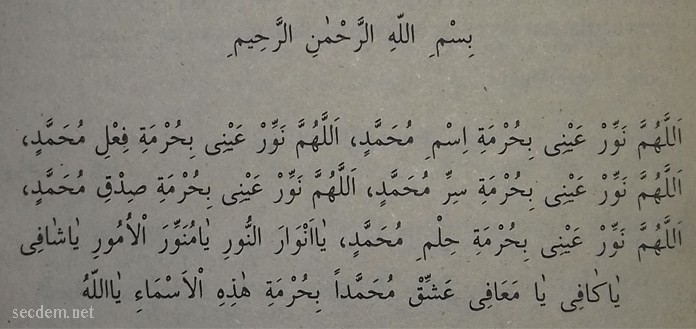 بِسْمِ اللّٰهِ الرَّحْمٰنِ الرَّحِيمِ
اَللَّهُمَّ نَوِّرْ عَيْنِى بِحُرْمَةِ اِسْمِ مُحَمَّدٍ، اَللَّهُمَّ نَوِّرْ عَيْنِى بِحُرْمَةِ فِعْلِ مُحَمَّدٍ،
اَللَّهُمَّ نَوِّرْ عَيْنِى بِحُرْمَةِ سِرِّ مُحَمَّدٍ، اَللَّهُمَّ نَوِّرْ عَيْنِى بِحُرْمَةِ صِدْقِ مُحَمَّدٍ،
اَللَّهُمَّ نَوِّرْ عَيْنِى بِحُرْمَةِ حِلْمِ مُحَمَّدٍ، يٰااَنْوَارَ النُّورِ يٰامُنَوِّرَ اْلاُمُورِ يٰاشٰافِى
يٰاكٰافِى يٰا مَعَافِى عَشِّقْ مُحَمَّداً بِحُرْمَةِ هٰذِهِ اْلاَسْمَاءِ يٰااَللّٰهُ
secdem.net